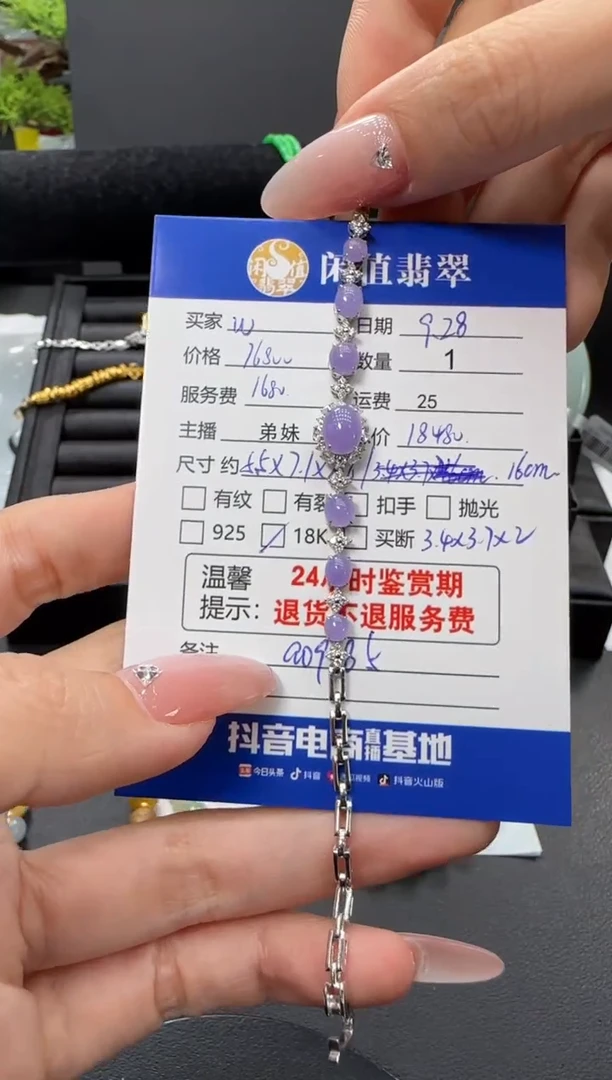 闲值翡翠
闲值翡翠
买家 W 日期 9.28
价格 16800 数量 1
服务费 1680. 运费 25
主播 弟妹 价 18480.
尺寸 约 5.5X7.1X 16cm
有纹 有裂 扣手 抛光
925 18K 买断 3.4x3.7x2
温馨 24小时鉴赏期
提示: 退货不退服务费
备注
抖音电商直播基地
今日头条 抖音 视频 抖音火山版